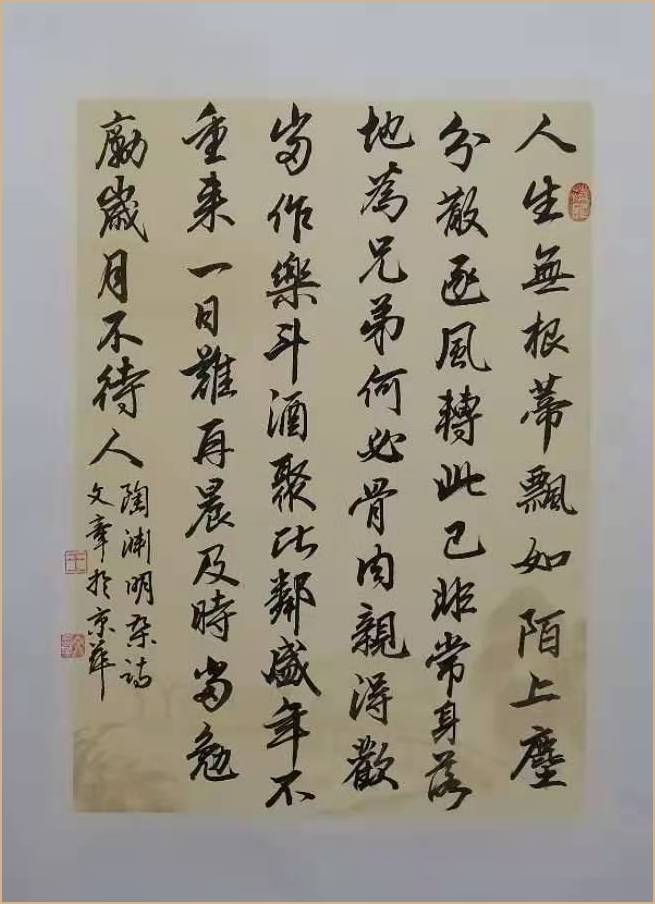 人生無根蒂飄如陌上塵
分散逐風轉此已非常身落
地為兄弟何必骨肉親得歡
當作樂斗酒聚比鄰盛年不
重来一日難再晨及時當勉
勵歲月不待人
陶渊明杂诗
文章於京華